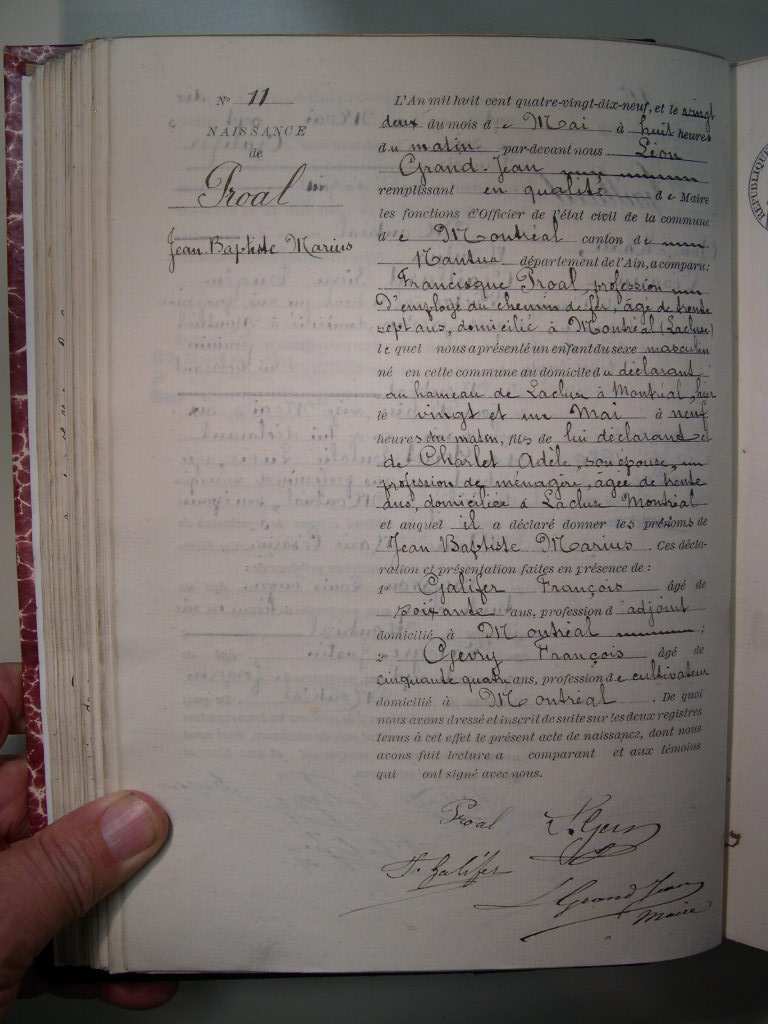 No 11
NAISSANCE
de
Proal
Jean Baptiste Marius
L'An mil huit cent quatre-vingt-dix-neuf, et le vingt
deux du mois d e Mai à huit heures
du matin par-devant nous Léon
Grand-Jean
remplissant en qualité d e Maire
les fonctions d'Officier de l'état civil de la commune
d e Montréal canton de
Nantua département de l'Ain, a comparu:
Francisque Proal, profession
D'employé du chemin de fer, âgé de trente
sept ans, domicilié à Montréal (Lacluse)
le quel nous a présenté un enfant du sexe masculin
né en cette commune au domicile du déclarant
au hameau de Lacluse à Montréal, hier
le vingt et un Mai à neuf
heures du matin, fils de lui déclarant et
de Charlet Adèle, son épouse,
profession de ménagère, âgée de trente
ans, domiciliée à Lacluse Montréal
et auquel il a déclaré donner les prénoms de
Jean Baptiste Marius. Ces décla-
ration et présentation faites en présence de :
1º Galifer François âgé de
soixante ans, profession d adjoint
domicilié à Montréal ;
2º François âgé de
cinquante quatre ans, profession d e cultivateur
domicilié à Montréal. De quoi
nous avons dressé et inscrit de suite sur les deux registres
tenus à cet effet le présent acte de naissance, dont nous
avons fait lecture a comparant et aux témoins
qui ont signé avec nous.
Proal
F. Galifer
L Grand Jean
Maire
RÉPUBLIQUE